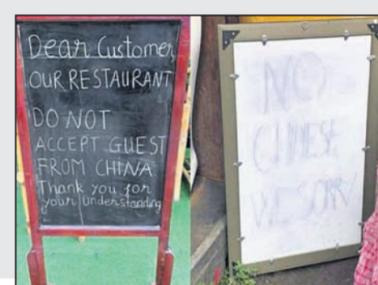 Dear Customer,
OUR RESTAURANT
DO NOT
ACCEPT GUEST
FROM CHINA
Thank you for
your understanding
NO
CHINESE
WE SORRY